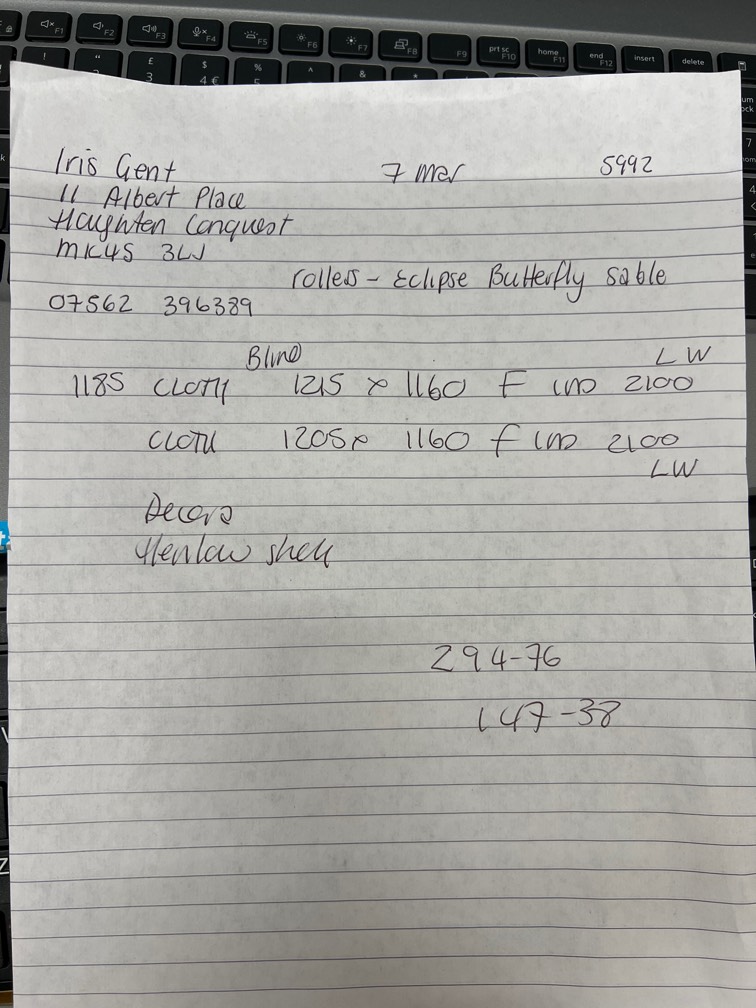 F1 F2 F3 F4 F5 F6 F7 F8 F9 prt sc F10 home F11 end F12 insert delete
! " £ 3 $ 4 € % 5 ^ & *
Iris Gent 7 Mar 5992
11 Albert Place
Haughten Conquest
MK45 3LJ
rollers - Eclipse Butterfly Sable
07562 396389
Blind LW
1185 CLOTH 1215 x 1160 F IND 2100
CLOTH 1205 x 1160 F IND 2100
LW
Decora
Henlow shell
294-76
147-38